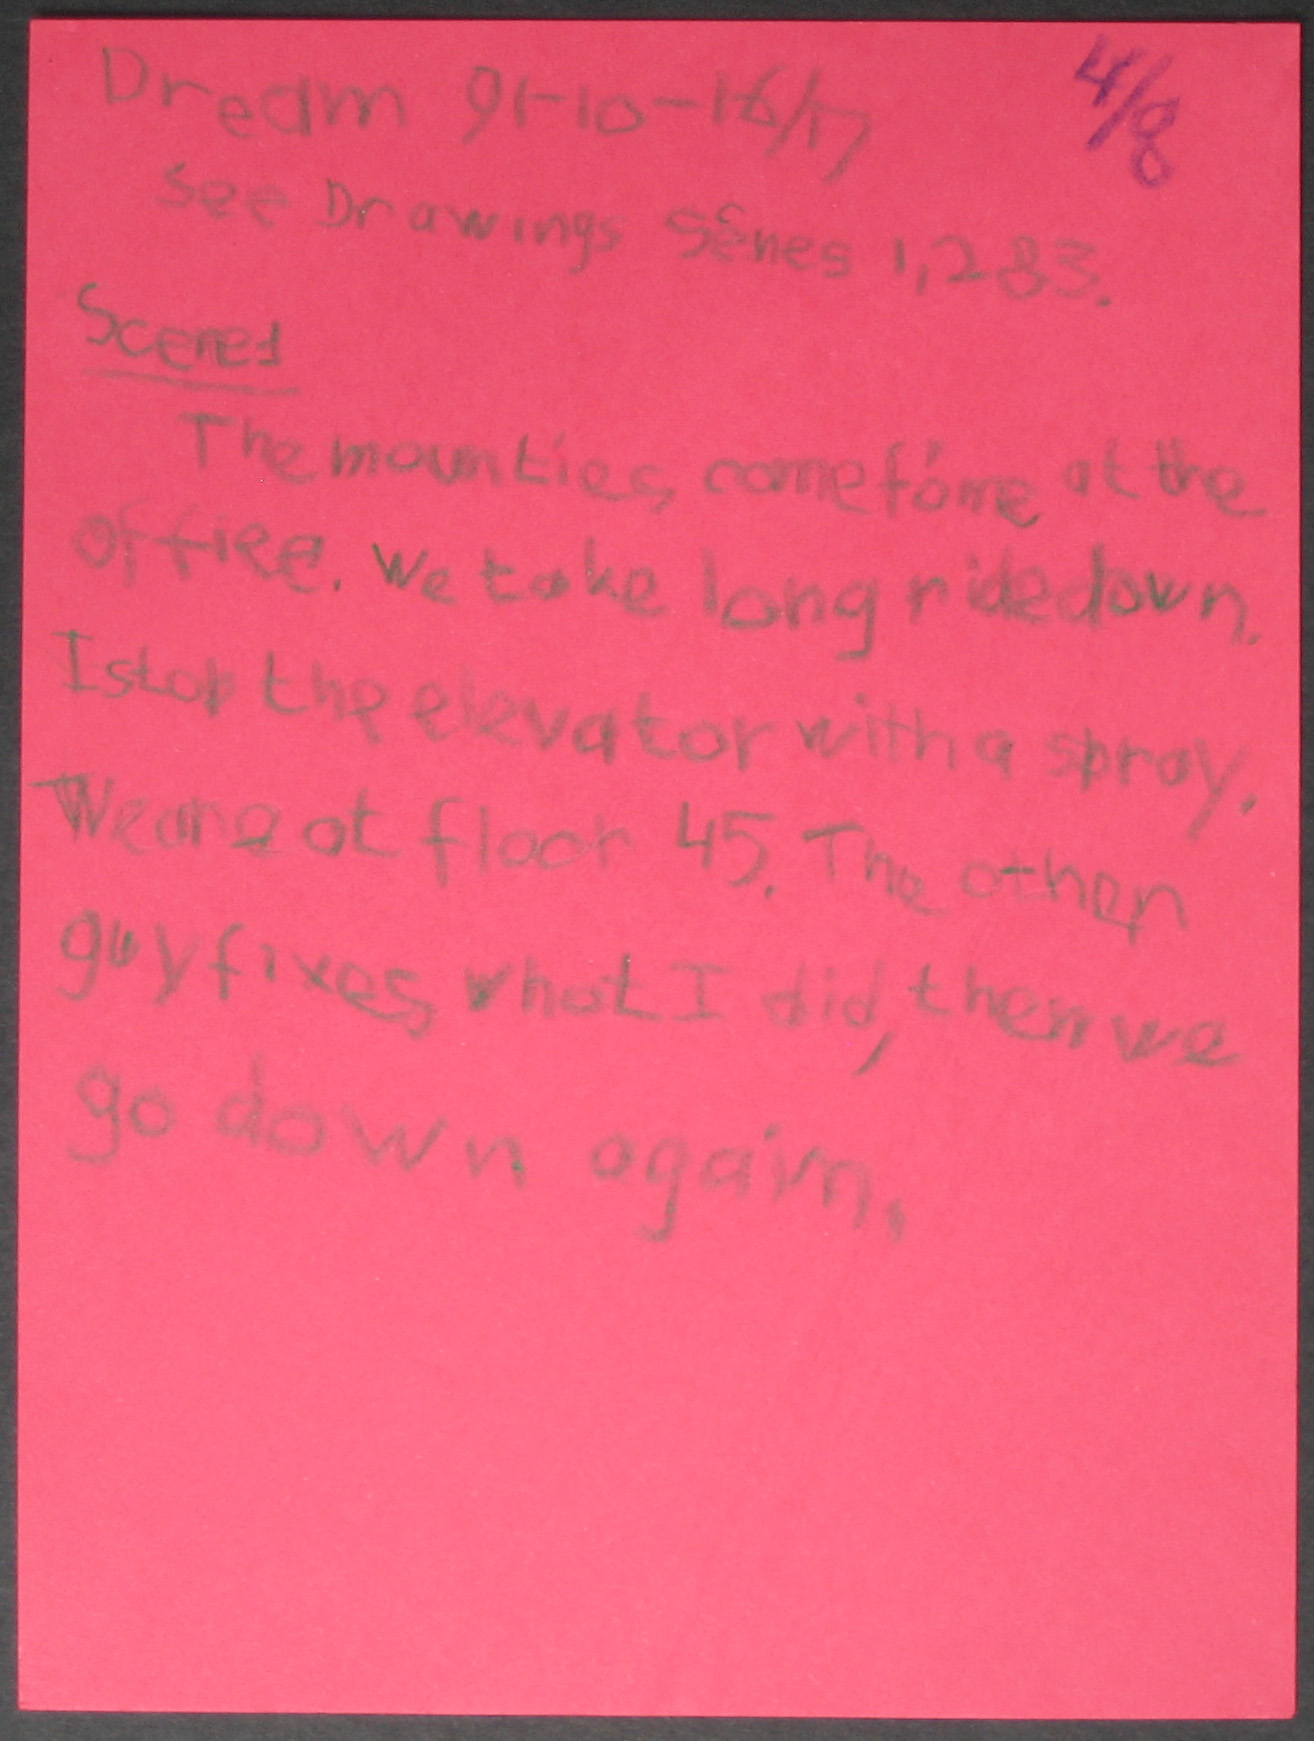 4/8
Dream 91-10-16/17
See Drawings Series 1, 2 & 3.
Scene 1
The mounties come for me at the
office. We take long ride down.
I stop the elevator with a spray.
We are at floor 45. The other
guy fixes what I did, then we
go down again.